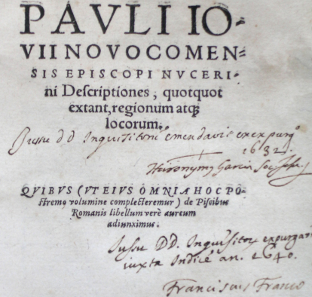 PAVLI IO-
VII NOVOCOMEN-
SIS EPISCOPI NVCERI-
ni Descriptiones, quotquot
extant, regionum atq;
locorum.
Jussu dd Inquisitorũ emendavi et expurg
1632.
Hieronymꝰ Garcia
QVIBVS (VT EIVS OMNIA HOC PO-
stremo volumine complecteremur) de Piscibus
Romanis libellum verè aureum
adiunximus.
Jussu DD. Inquisitorũ expurgavi
iuxta Indicẽ an. 1640.
Franciscus Franco